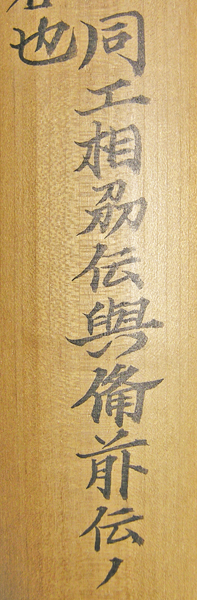 同工相刕伝與備前伝ノ
也